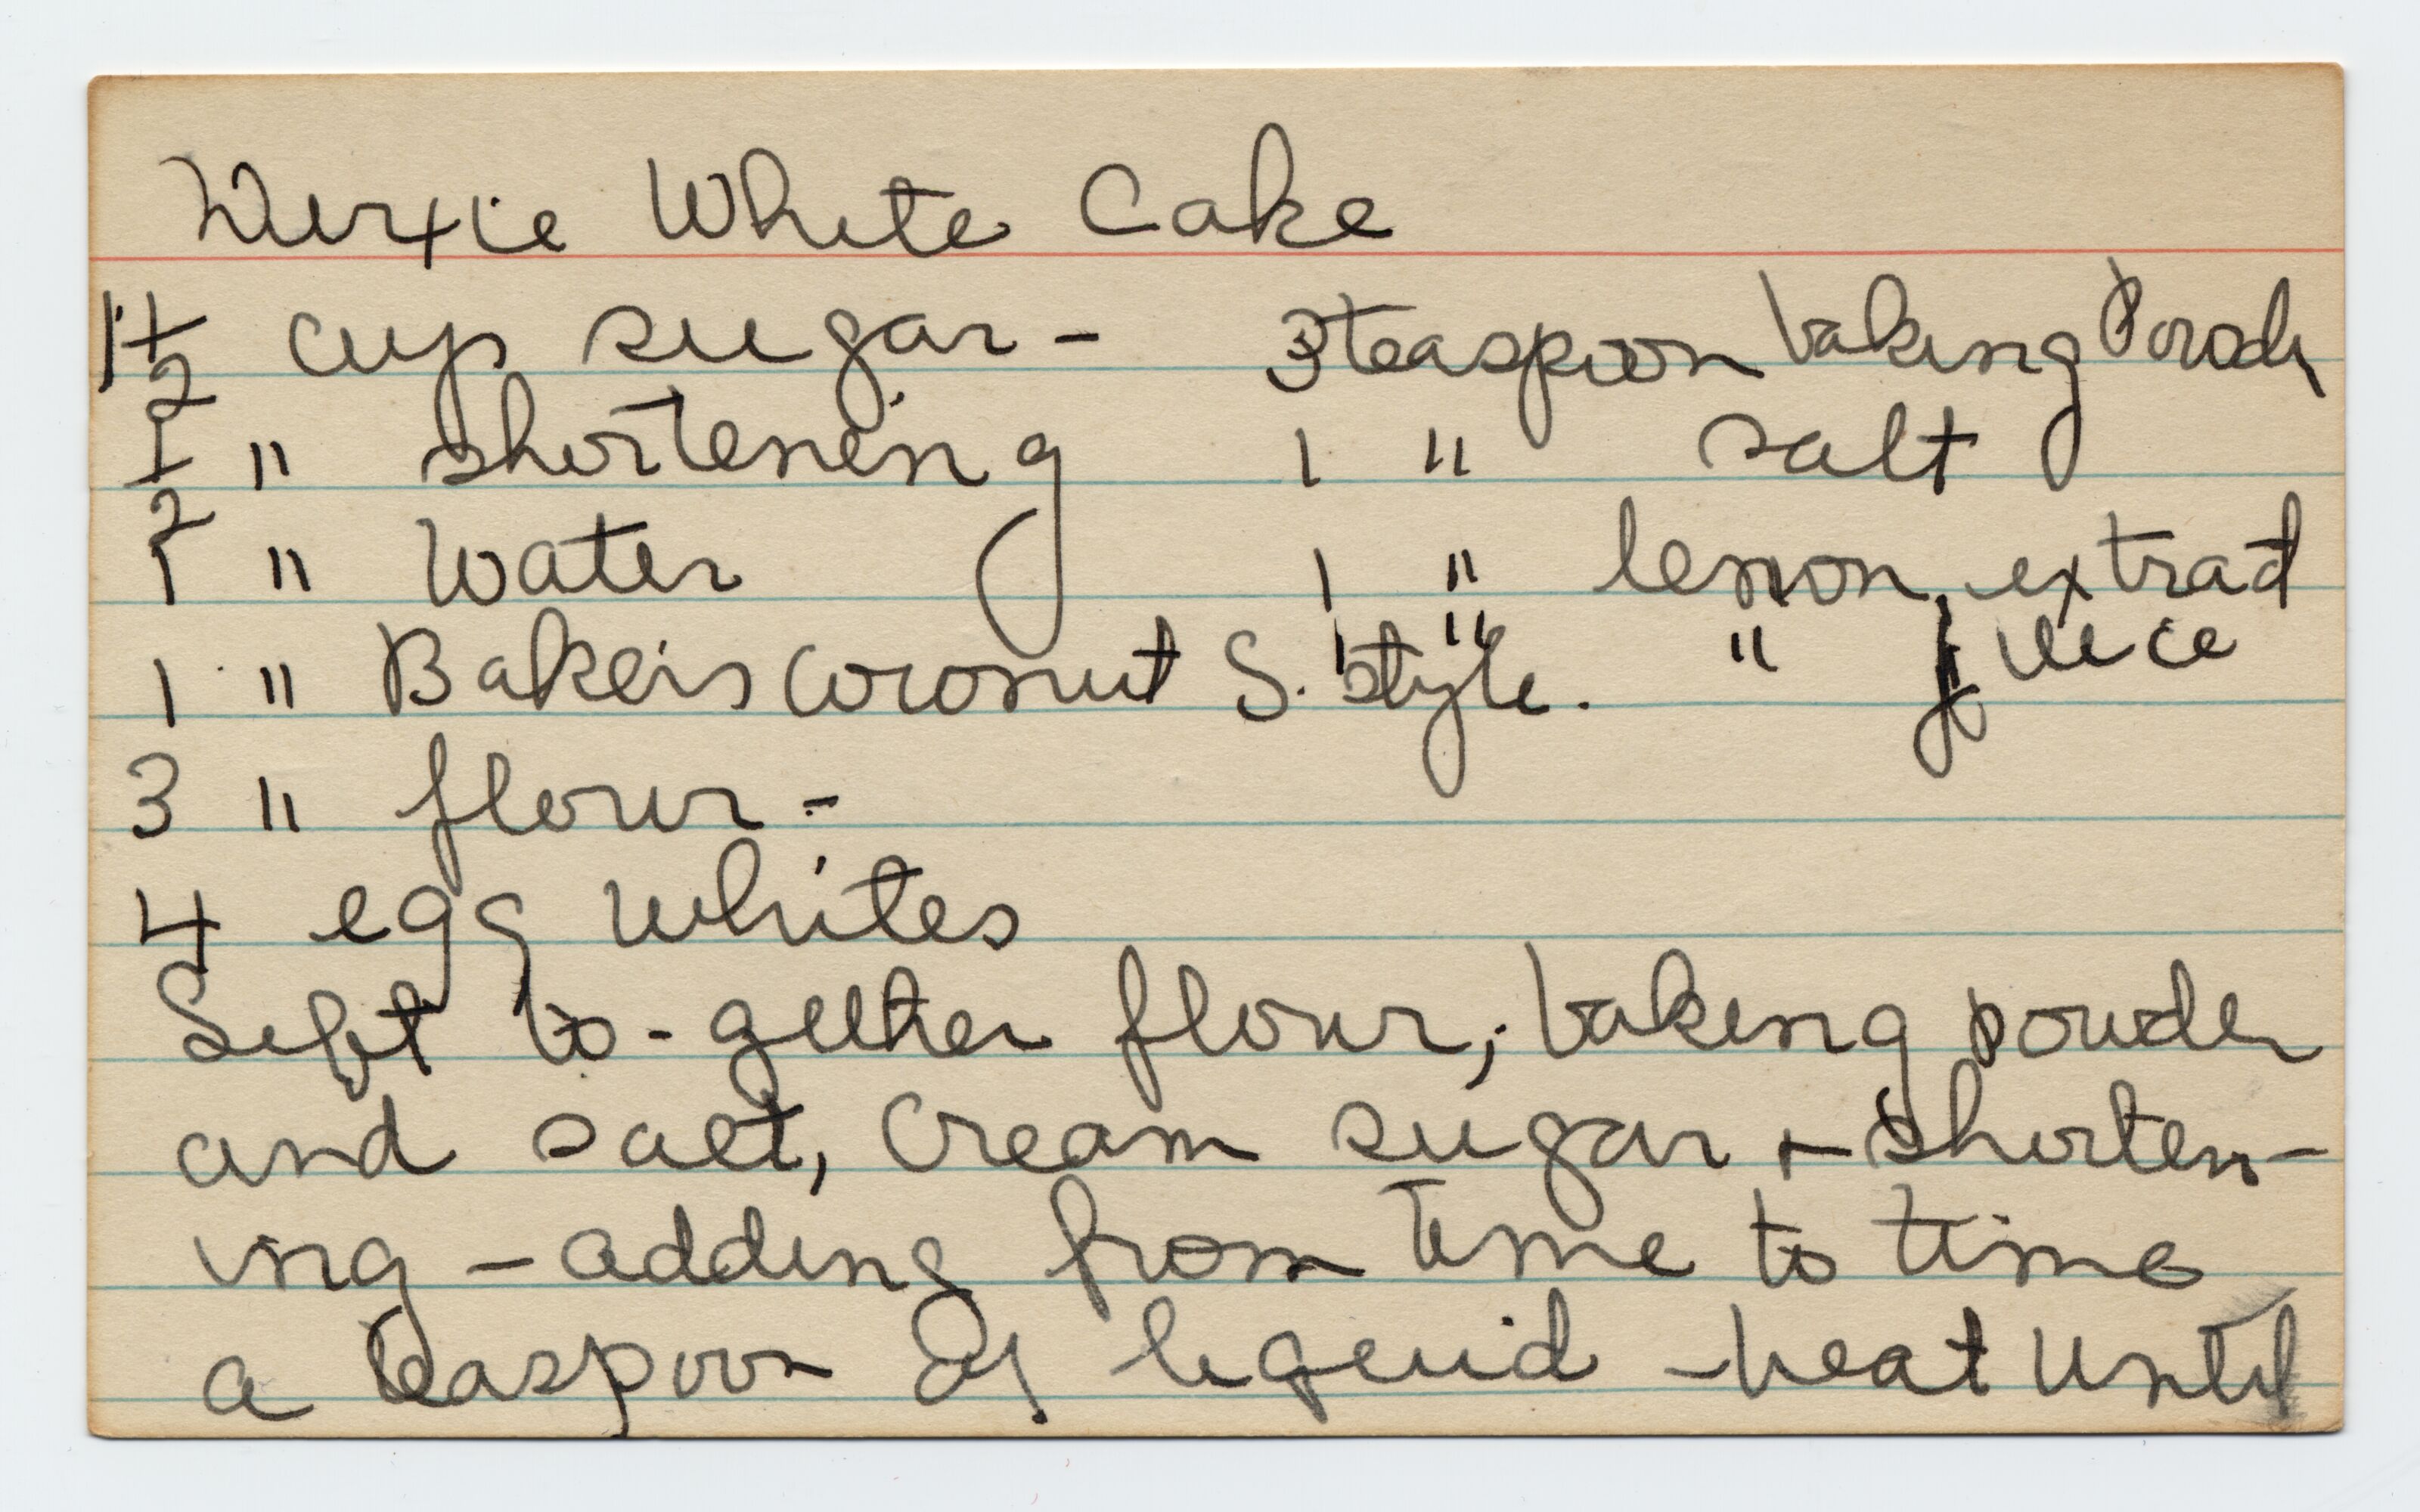 Dixie White Cake
1 1/2 cup sugar - 3 teaspoon baking Powder
1/2 " shortening 1 " salt
1 " water 1 " lemon extract
1 " Bakers Coconut S. style. 1 " " juice
3 " flour -
4 egg whites
Sift to-gether flour, baking powder
and salt, cream sugar + shorten-
ing - adding from time to time
a teaspoon of liquid - beat until